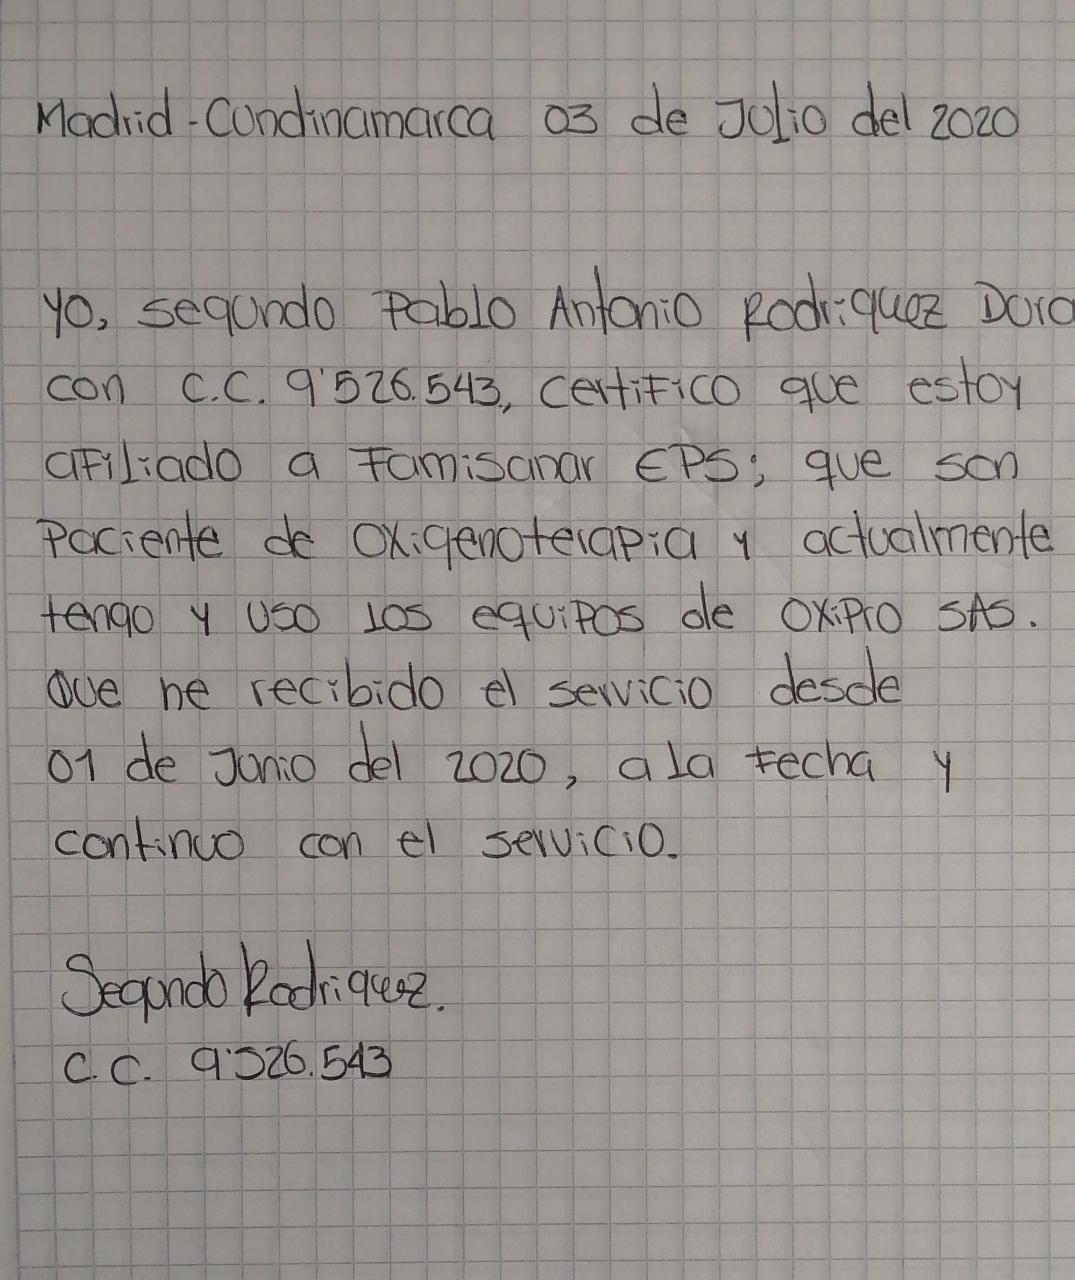 Madrid - Cundinamarca 03 de Julio del 2020
Yo, segundo Pablo Antonio Rodriguez
con C.C. 9'526.543, certifico que estoy
afiliado a Famisanar EPS; que son
Paciente de Oxigenoterapia y actualmente
tengo y uso los equipos de OxiPro SAS.
Que he recibido el servicio desde
01 de Junio del 2020, a la fecha y
continuo con el servicio.
Segundo Rodriguez.
C.C. 9'526.543